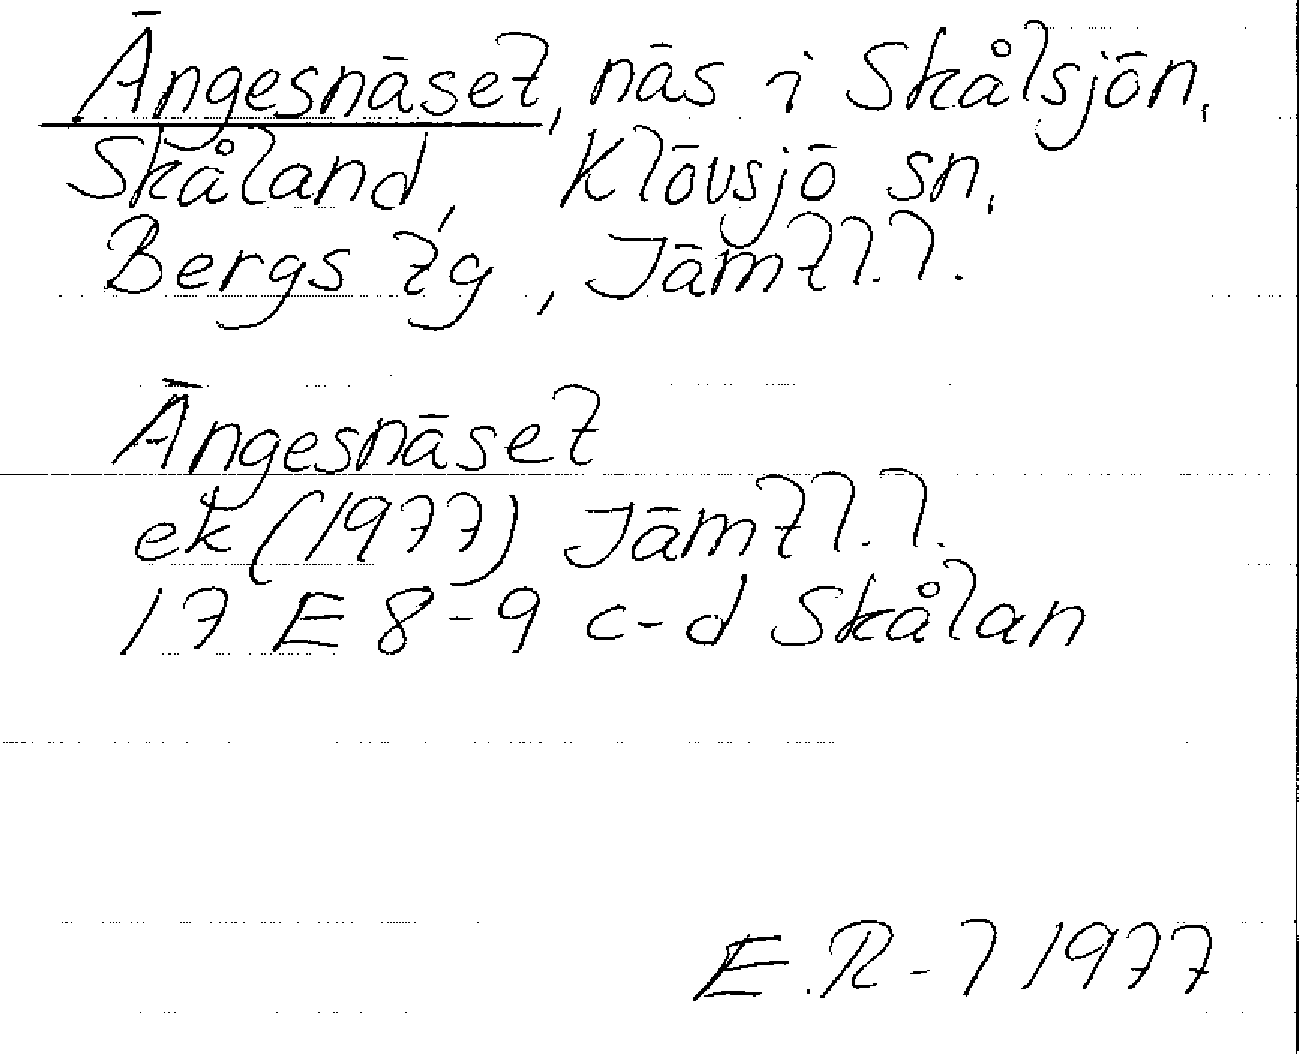 Ängesnäset, näs i Skålsjön,
Skåland, Klövsjö sn,
Bergs tg, Jämtl.l.
Ängesnäset
ek (1977) Jämtl.l.
17 E 8-9 c-d Skålan
E.R-l 1977